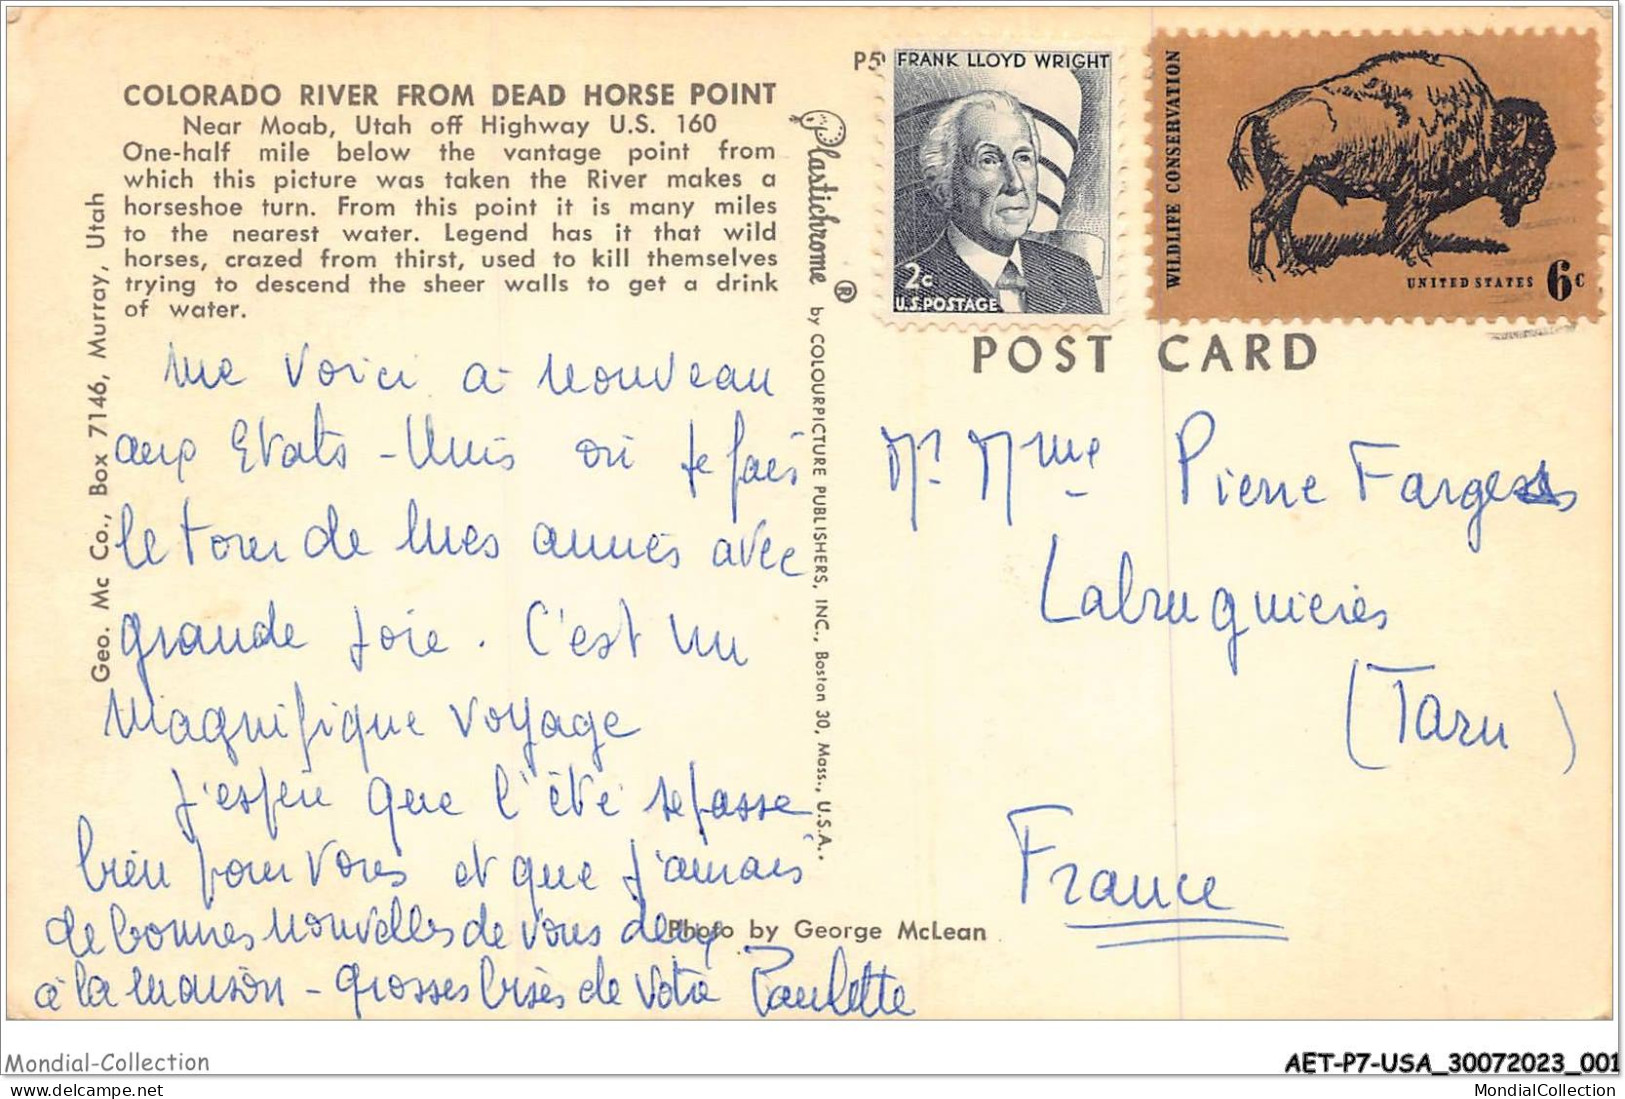 COLORADO RIVER FROM DEAD HORSE POINT
Near Moab, Utah off Highway U.S. 160
One-half mile below the vantage point from
which this picture was taken the River makes a
horseshoe turn. From this point it is many miles
to the nearest water. Legend has it that wild
horses, crazed from thirst, used to kill themselves
trying to descend the sheer walls to get a drink
of water.
Geo. Mc Co., Box 7146, Murray, Utah
me voici à nouveau
aux Etats-Unis où je fais
le tour de mes amies avec
grande joie. C'est un
magnifique voyage
J'espère que l'été se passe
bien pour vous et que j'aurais
de bonnes nouvelles de vous deux
à la maison - grosses bises de votre Paulette
Photo by George McLean
Plastichrome ® by COLOURPICTURE PUBLISHERS, INC., Boston 30, Mass., U.S.A.
P5
FRANK LLOYD WRIGHT
2c
U.S. POSTAGE
WILDLIFE CONSERVATION
UNITED STATES 6c
POST CARD
Mr Mme Pierre Farges
Labruguières
(Tarn)
France
Mondial-Collection
AET-P7-USA_30072023_001
www.delcampe.net
MondialCollection